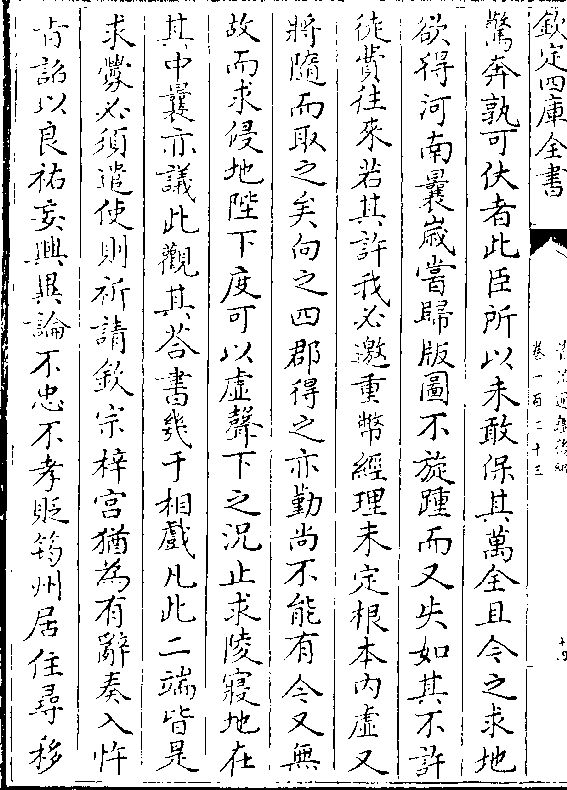 欽定四庫全書
卷一百二十三
驚奔孰可伏者此臣所以未敢保其萬全且今之求地
欲得河南曩歳嘗歸版圖不旋踵而又失如其不許
徒費往來若其許我必邀重幣經理未定根本内虛又
將隨而取之矣向之四郡得之亦勤尚不能有今又無
故而求侵地陛下度可以虛聲下之況止求陵寢地在
其中曩亦議此觀其荅書幾于相戲凡此二端皆是
求釁必須遣使則祈請欽宗梓宫猶為有辭奏入忤
㫖詔以良祐妄興異論不忠不孝貶筠州居住尋移